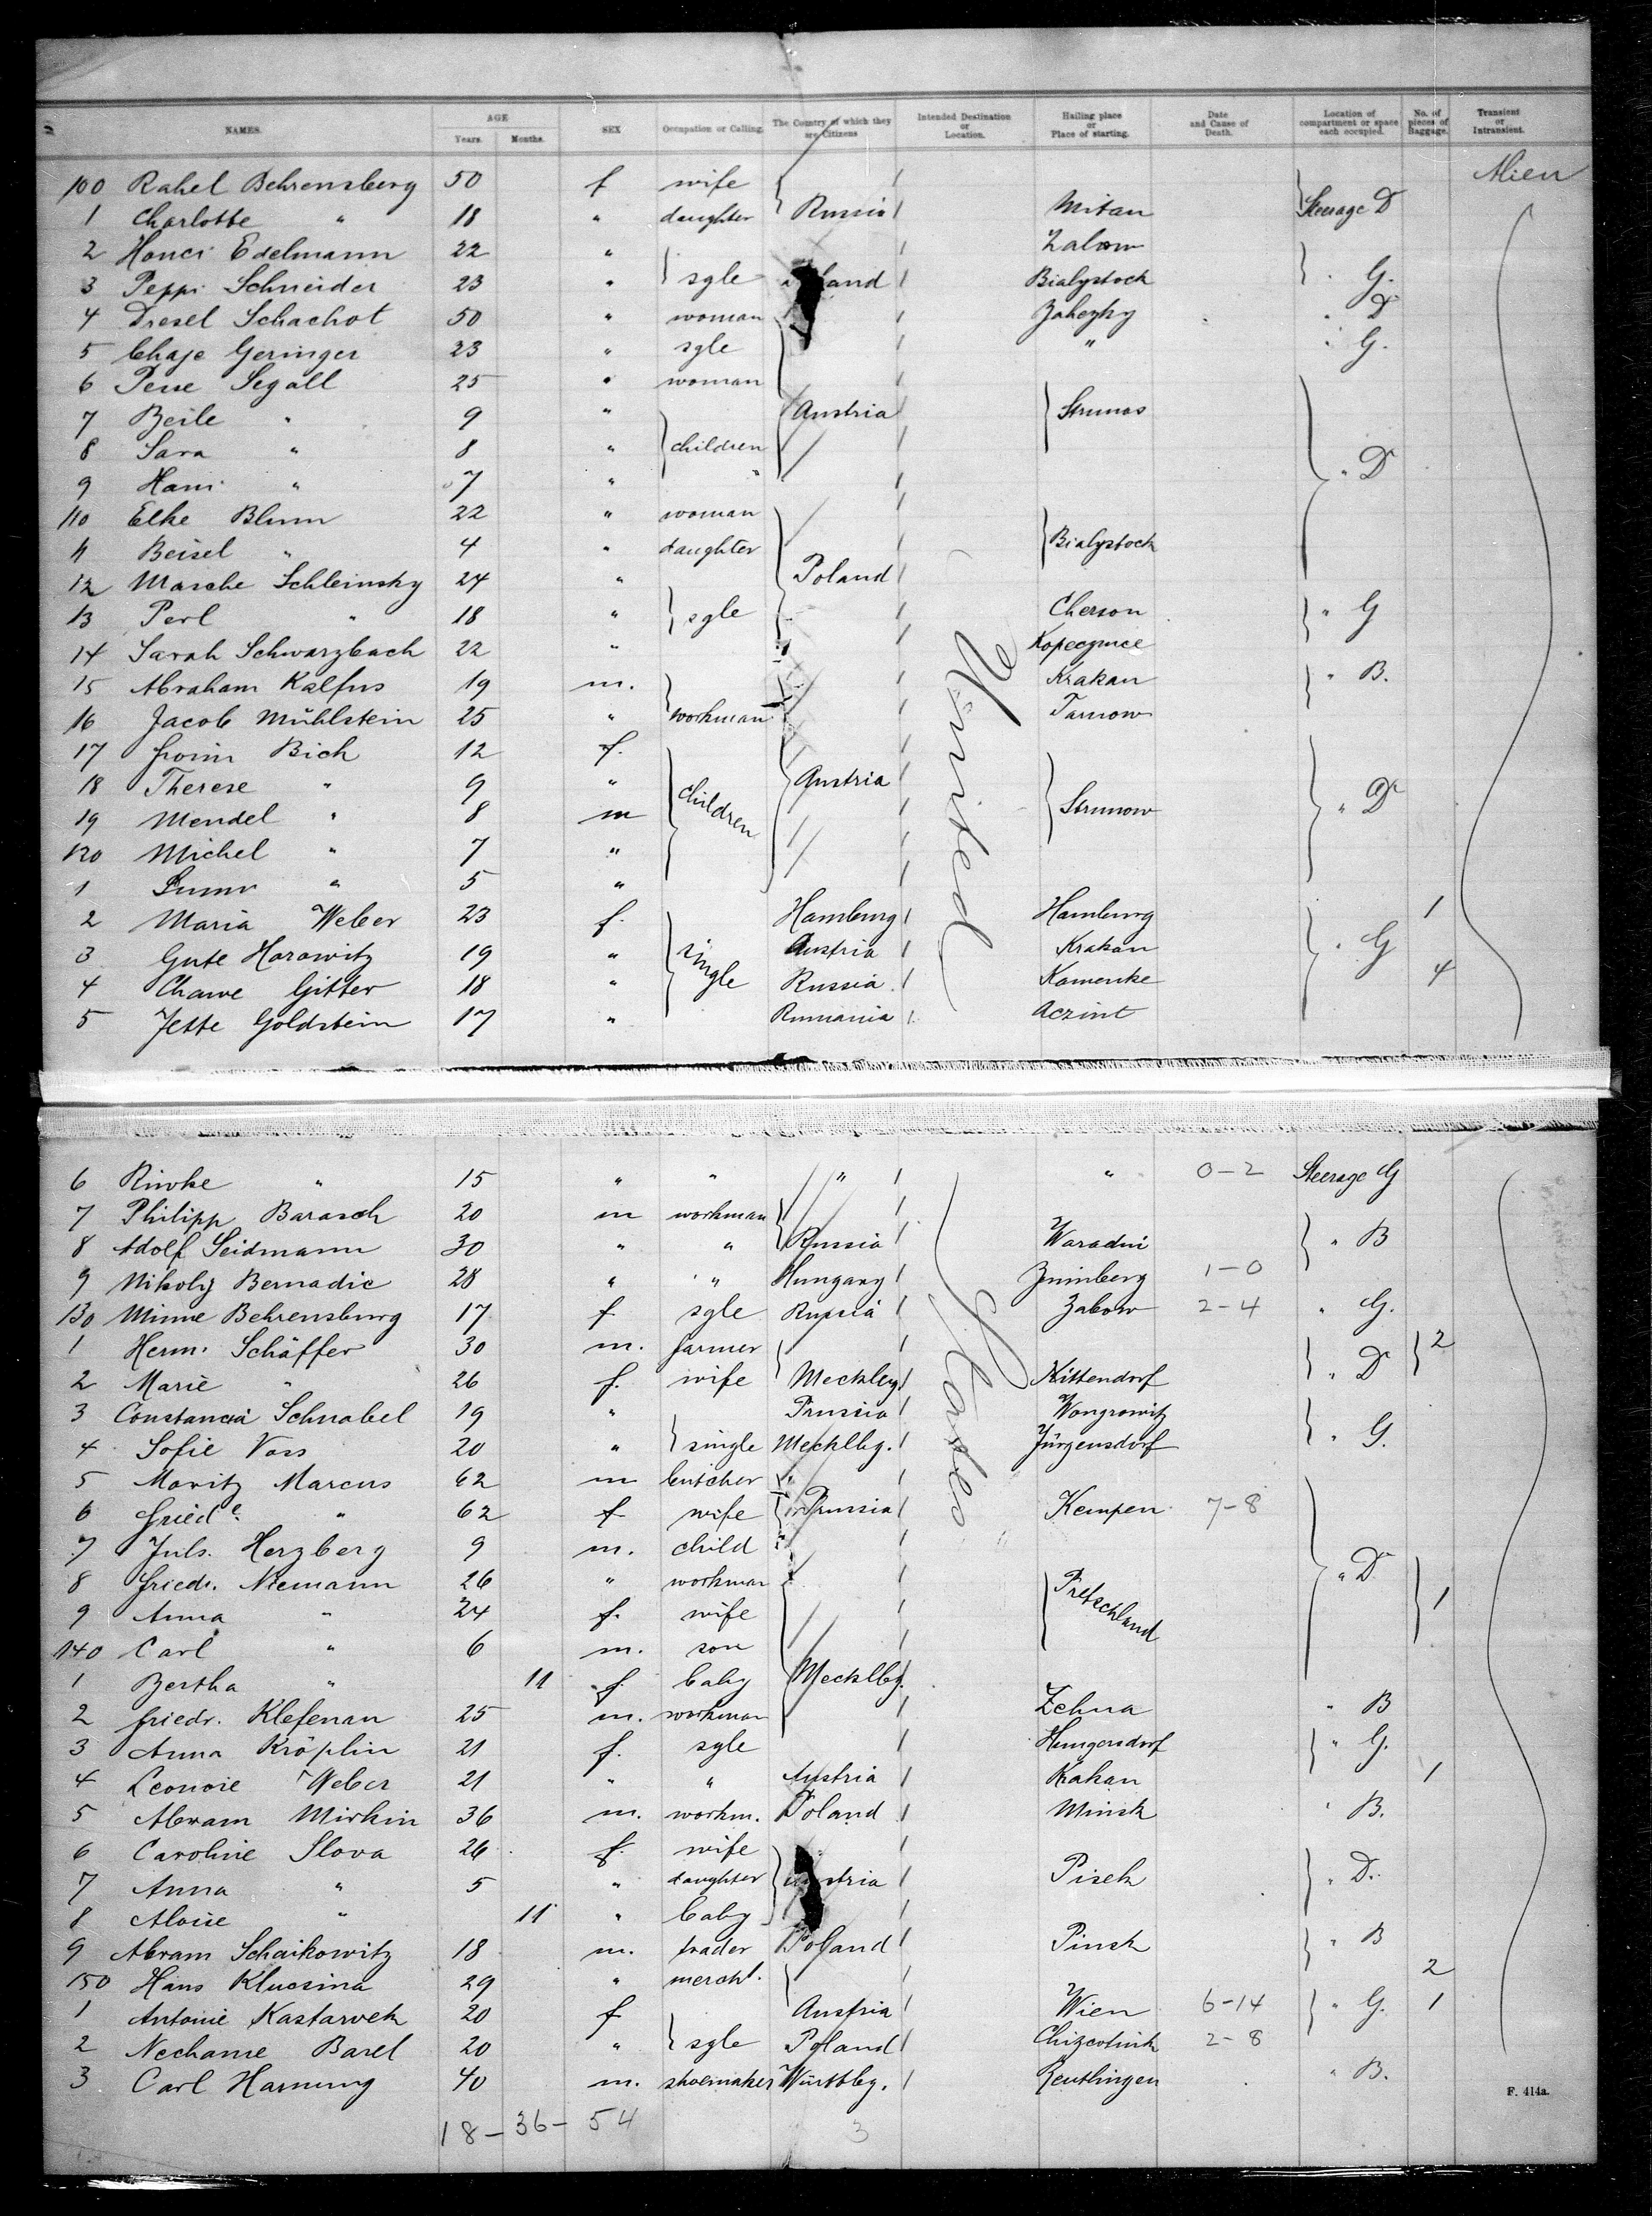 2
NAMES. AGE Years. Months. SEX Occupation or Calling. The Country of which they are Citizens Intended Destination or Location. Hailing place or Place of starting. Date and Cause of Death. Location of compartment or space each occupied. No. of pieces of Baggage. Transient or Intransient.
Alien
100 Rahel Behrensberg 50 f wife
1 Charlotte " 18 " daughter Russia Mitau Steerage D
2 Hanci Edelmann 22 " Zalow
3 Peppi Schneider 23 " sgle Bialystock " G.
4 Dresel Schachot 50 " woman Zahezky " D
5 Chaje Geringer 23 " sgle " " G.
6 Perie Segall 25 " woman
7 Beile " 9 " Austria Strunos
8 Sara " 8 " children
9 Hani " 7 " " " D
110 Elke Blum 22 " woman
11 Beisel " 4 " daughter Bialystock
12 Masche Schleinsky 24 " Poland
13 Perl " 18 " sgle Cherson " G
14 Sarah Schwarzbach 22 " Kopeczynce
15 Abraham Kalfus 19 m. Krakau " B.
16 Jacob Mühlstein 25 " workman Tarnow
17 Froim Bich 12 f.
18 Therese " 9 " Austria
19 Mendel " 8 m children Strunow " D
120 Michel " 7 "
1 " 5 "
2 Maria Weber 23 f. Hamburg Hamburg 1
3 Gute Horowitz 19 " single Austria Krakau " G
4 Chawe Gitter 18 " Russia Kamenke 4
5 Jette Goldstein 17 " Rumania Aczint
United
6 Riwke " 15 " " " " 0-2 Steerage G
7 Philipp Barasch 20 m workman
8 Adolf Seidmann 30 " " Russia Waradni " B
9 Nikoly Bernadic 28 " " Hungary Zninberg 1-0
130 Minne Behrensburg 17 f sgle Russia Zabow 2-4 " G.
1 Herm. Schäffer 30 m. farmer 2
2 Marie " 26 f. wife Mecklbg Kittendorf " D
3 Constancia Schnabel 19 " Prussia Wongrowitz
4 Sofie Voss 20 " single Mecklbg. Jürgensdorf " G.
5 Moritz Marcus 62 m butcher "
6 Friede " 62 f wife Prussia Kempen 7-8
7 Juls. Herzberg 9 m. child
8 Friedr. Niemann 26 " workman " D
9 Anna " 24 f. wife Pretschland 1
140 Carl " 6 m. son
1 Bertha " 11 f. baby Mecklbg.
2 Friedr. Klefenau 25 m. workman Zehna " B
3 Anna Kröplin 21 f. sgle Hungersdorf " G.
4 Leonoie Weber 21 " " Austria Krakau 1
5 Abram Mirkin 36 m. workm. Poland Minsk " B.
6 Caroline Slova 26 f. wife
7 Anna " 5 " daughter Austria Pisek " D.
8 Aloise " 11 " baby
9 Abram Schaikowitz 18 m. trader Poland Pinsk " B
150 Hans Klucsina 29 " mercht. 2
1 Antonie Kastarvek 20 f Austria Wien 6-14 " G. 1
2 Nechame Barel 20 " sgle Poland 2-8
3 Carl Harnung 40 m. shoemaker Württbg. Reutlingen " B.
States
F. 414a.
18-36-54 3